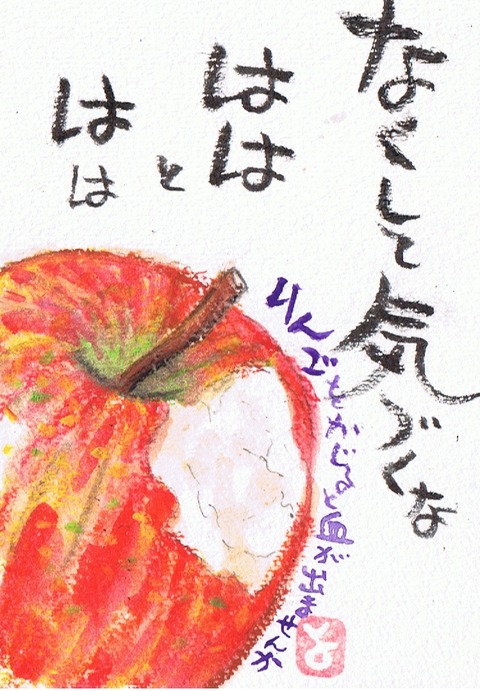 なくして気づくな
はは
と
はは
りんごをかじると血が出ませんか